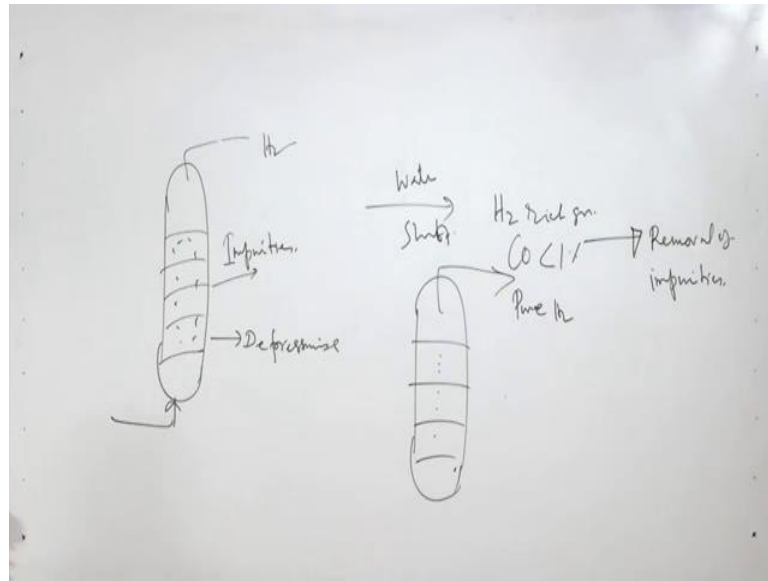 H2
Impurities.
Depressurise
Water
Shift
H2 rich gas.
CO <1%
Pure H2
Removal of
impurities.